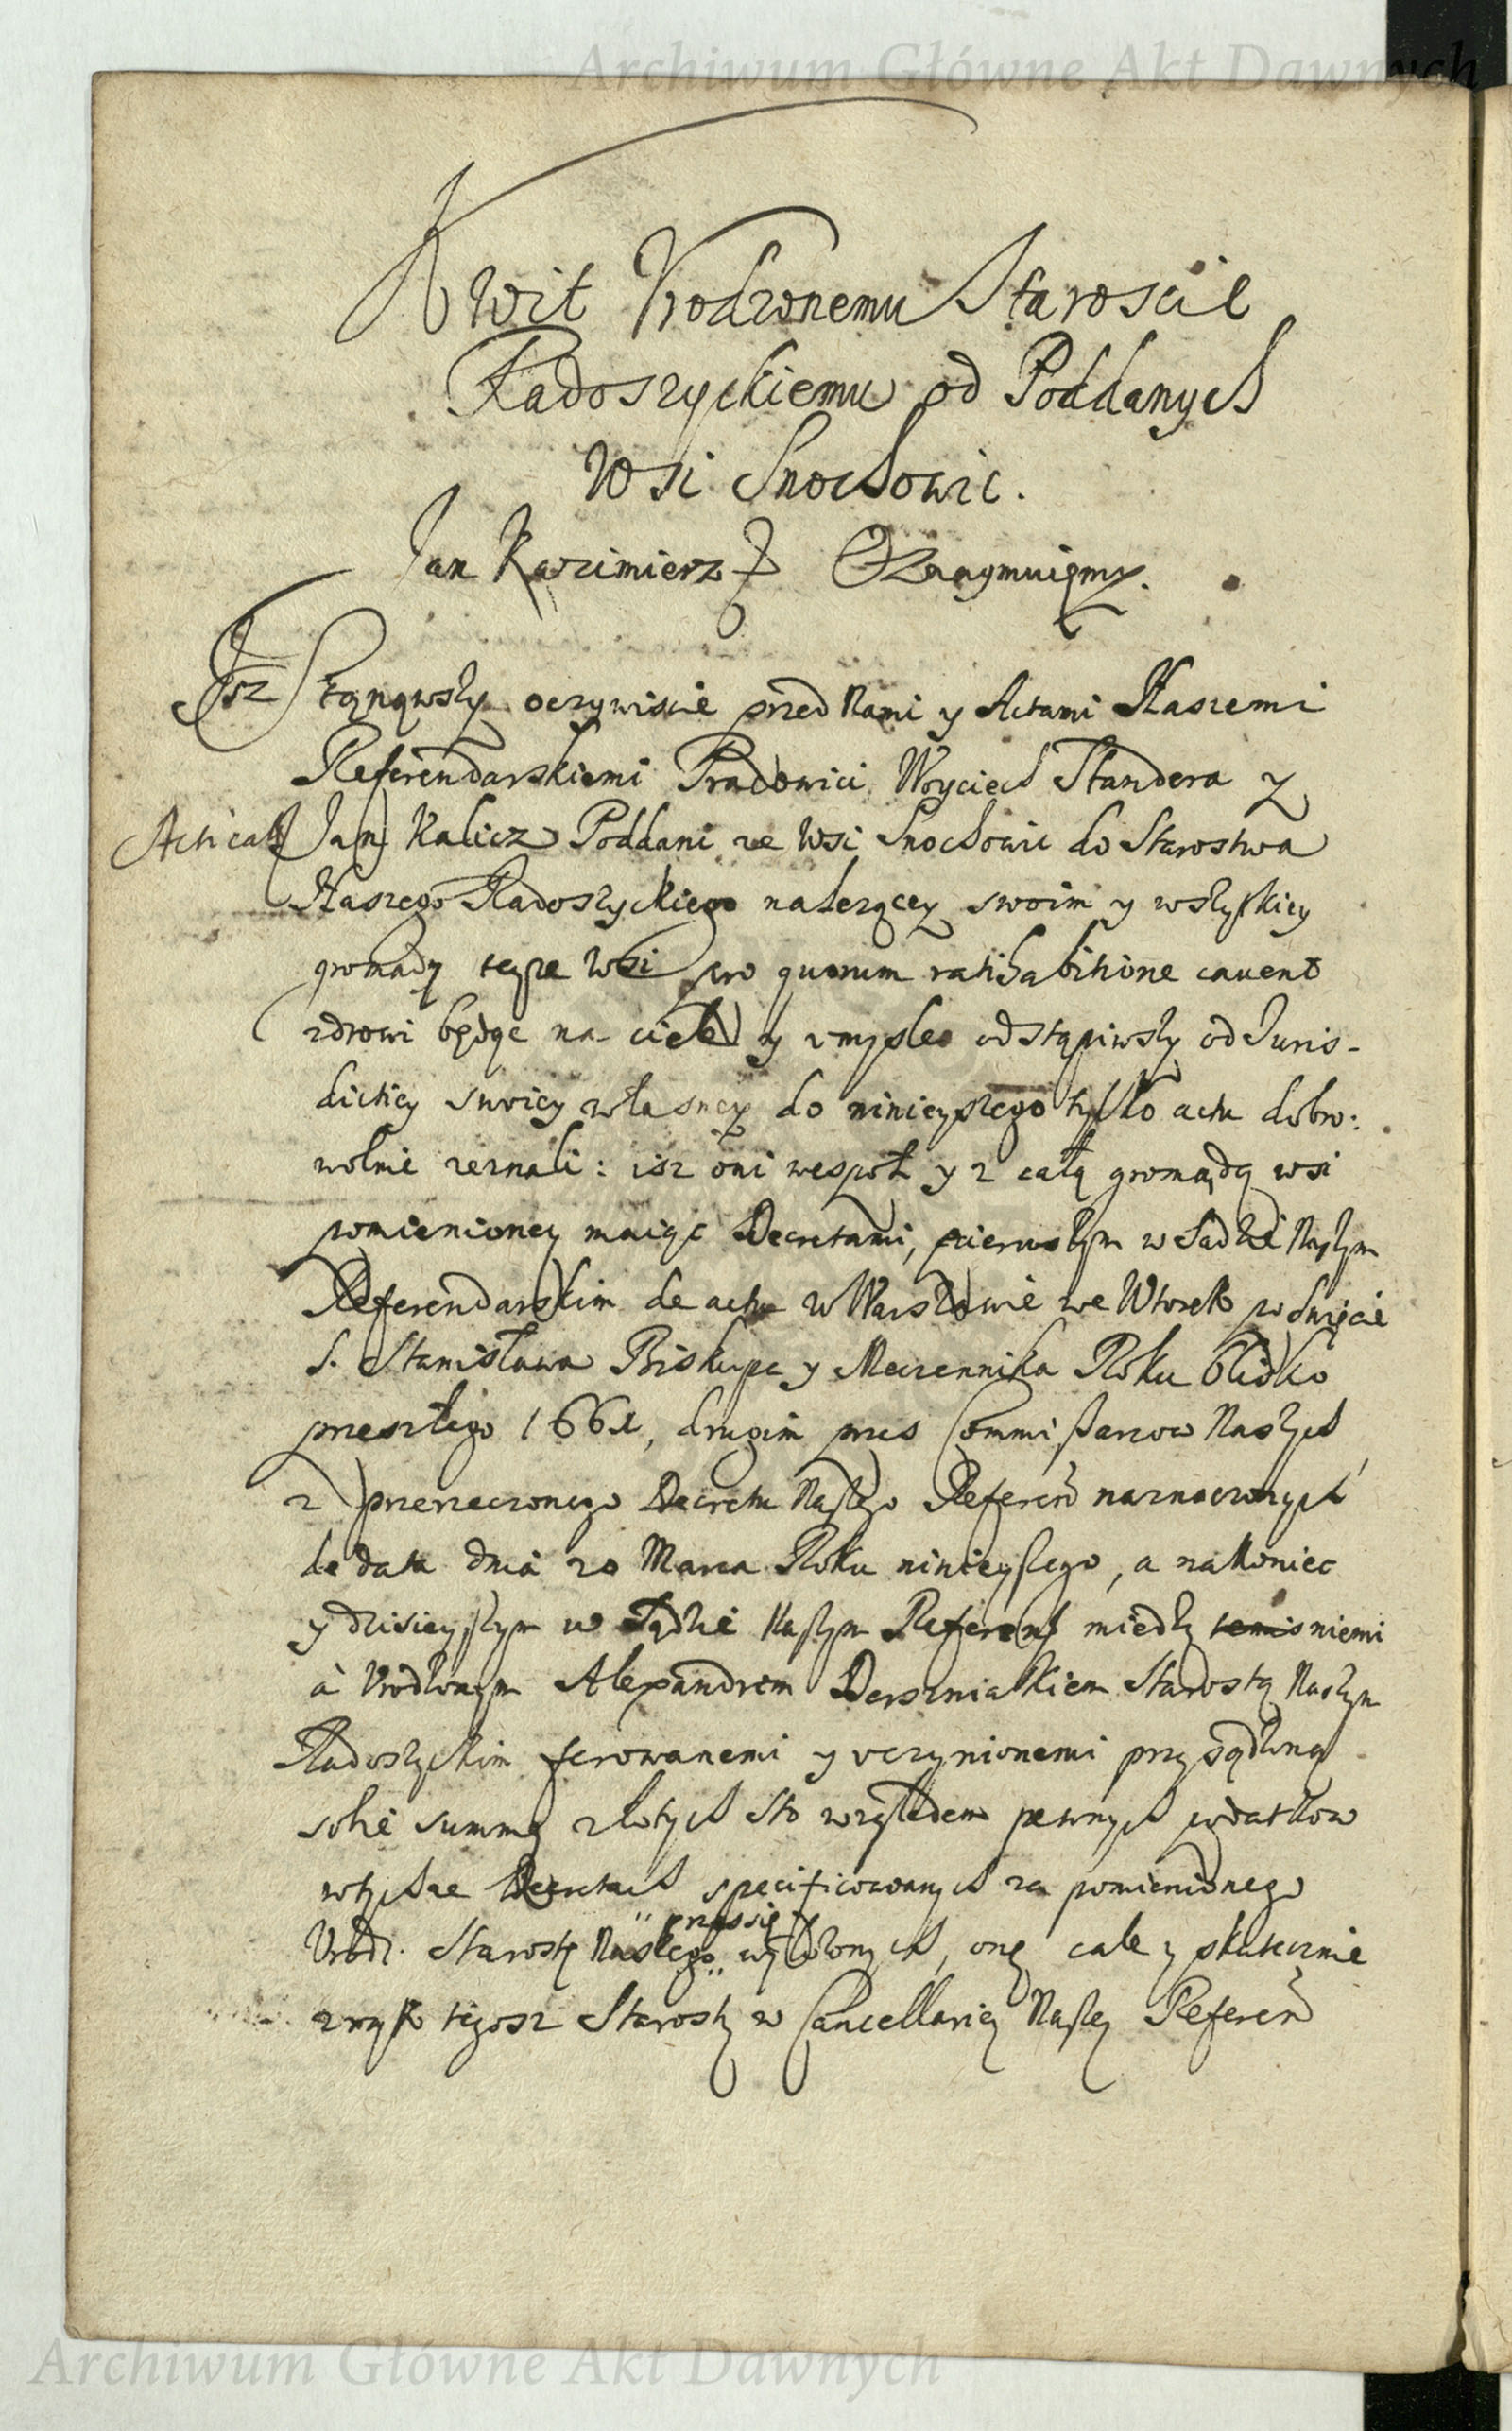 Archiwum Główne Akt Dawnych
Kwit Vrodzonemu Staroscie
Radoszyckiemu od Poddanych
Wsi Snochowic.
Jan Kazimierz Oznaymuięmy.
Isz Stąnąwszy oczywiscie przed Nami y Actami Naszemi
Referendarskiemi Pracowici Woyciech Standera y
Jan Kalicz Poddani ze Wsi Snochowic do Starostwa
Naszego Radoszyckiego należącey swoim y wszyskiey
gromady teyze Wsi pro quorum ratihabitione cauent
zdrowi będąc na ciele y vmysle odstąpiwszy od Juris-
dictiey swoiey własney do ninieyszego tylko actu dobro:
wolnie zeznali: isz oni wespoł y z całą gromadą wsi
pomienioney maiąc Decretami, pierwszym w Sadzie Naszym
Referendarskim de actu w Warszawie we Wtorek po Swięcie
S. Stanisława Biskupa y Męczennika Roku blisko
przeszłego 1661, drugim przes Commissarzow Naszych
z przerzeczonego Decretu Naszego Referen naznaczonych
de data dnia 20 Marca Roku ninieyszego, a nakoniec
y dzisieyszym w Sądzie Naszym Referen między niemi
à Vrodzonym Alexandrem Derszniakiem Starostą Naszym
Radoszyckim ferowanemi y vczynionemi przysądzoną
sobie summę złotych sto względem pewnych podatkow
w tychze Decretach specificowanych za pomienionego
Vrodz. Starosty Naszego przessię wybranych, onę cale y skutecznie
z rąk tegosz Starosty w Cancellariey Naszey Referen
Archiwum Główne Akt Dawnych